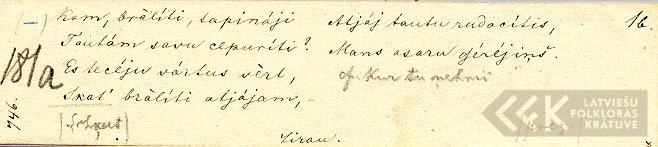 (–) Kam, brālīti, tapināji
Tautām savu cepurīti?
Es tecēju vārtus vērt,
Skat' brālīti atjājam, –
Atjāj tautu rudacītis,
Mans asaru dzērējiņš.
cf. Kur tu ņēmi
16.
181a
746.
Lirau.
LATVIEŠU
FOLKLORAS
KRĀTUVE